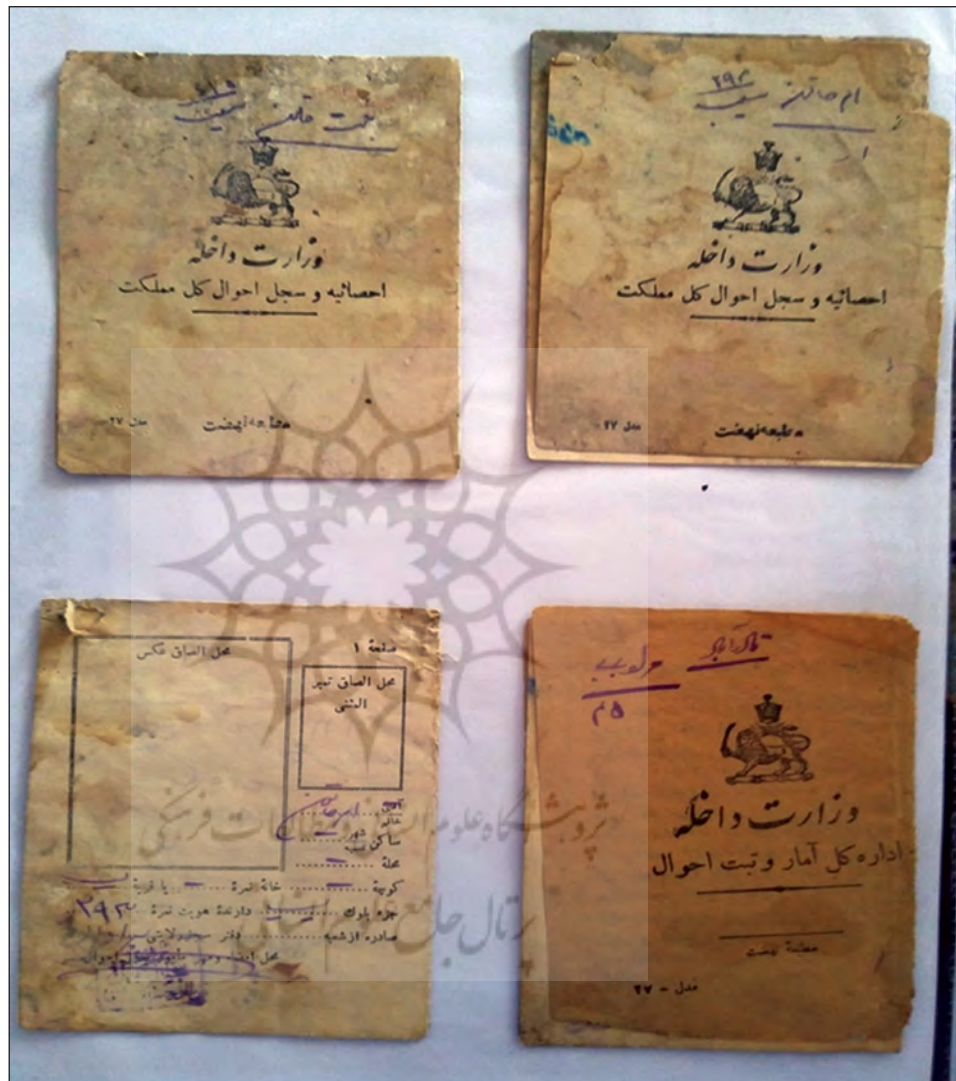 ۲۹۳
وزارت داخله
احصائیه و سجل احوال کل مملکت
مطبعه نهضت
مدل ۲۷
وزارت داخله
احصائیه و سجل احوال کل مملکت
مطبعه نهضت
مدل ۲۷
صفحهٔ ۱
محل الصاق عکس
محل الصاق تمبر
المثنی
آقای
خانم
ساکن شهر
قصبه
محلهٔ
کوچهٔ خانهٔ نمرهٔ یا قریهٔ
جزء بلوک دارندهٔ هویت نمرهٔ ۲۹۳
صادره از شعبه دفتر سجل ولایتی
محل امضاء و مهر مأمور سجل احوال
۴۵
وزارت داخله
اداره کل آمار و ثبت احوال
مطبعهٔ نهضت
مدل - ۲۷
پژوهشگاه علوم انسانی و مطالعات فرهنگی
پرتال جامع علوم انسانی